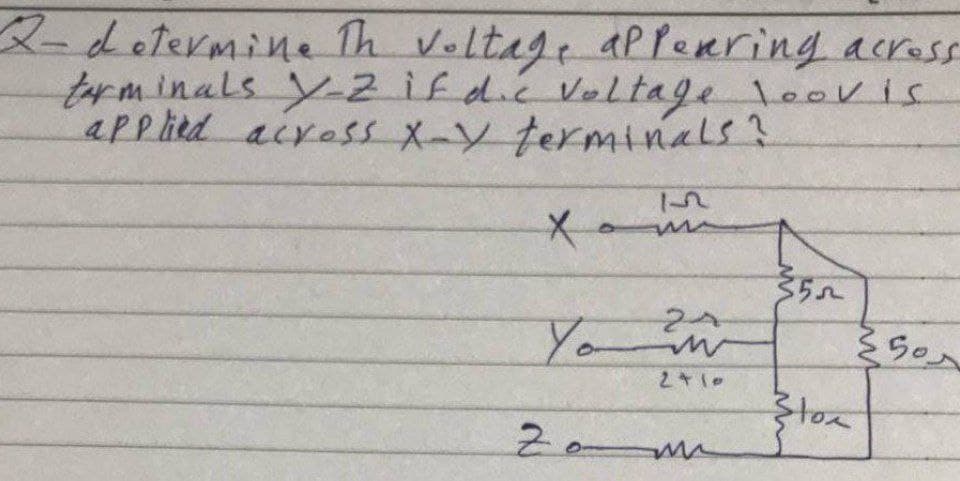 Q- determine Th voltage appearing across
tarminals Y-Z if d.c voltage 100V is
applied across X-Y terminals?
X 1Ω
5Ω
Y 2Ω
50Ω
2+10
10Ω
Z